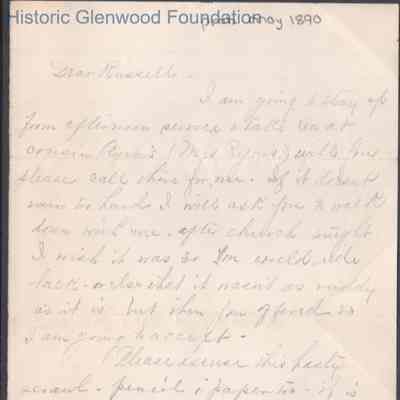 Historic Glenwood Foundation
May 1890
Dear Russell.
I am going to stay up
from afternoon service & take tea at
cousin (Mrs Byrns) will you
please call there for me. If it doesn't
rain too hard I will ask you to walk
down with me after church to night
I wish it was so you could ride
back - or else that it wasn't as muddy
as it is but then you offered so
I am going to accept.
Please excuse this hasty
scrawl - pencil & paper too - it is